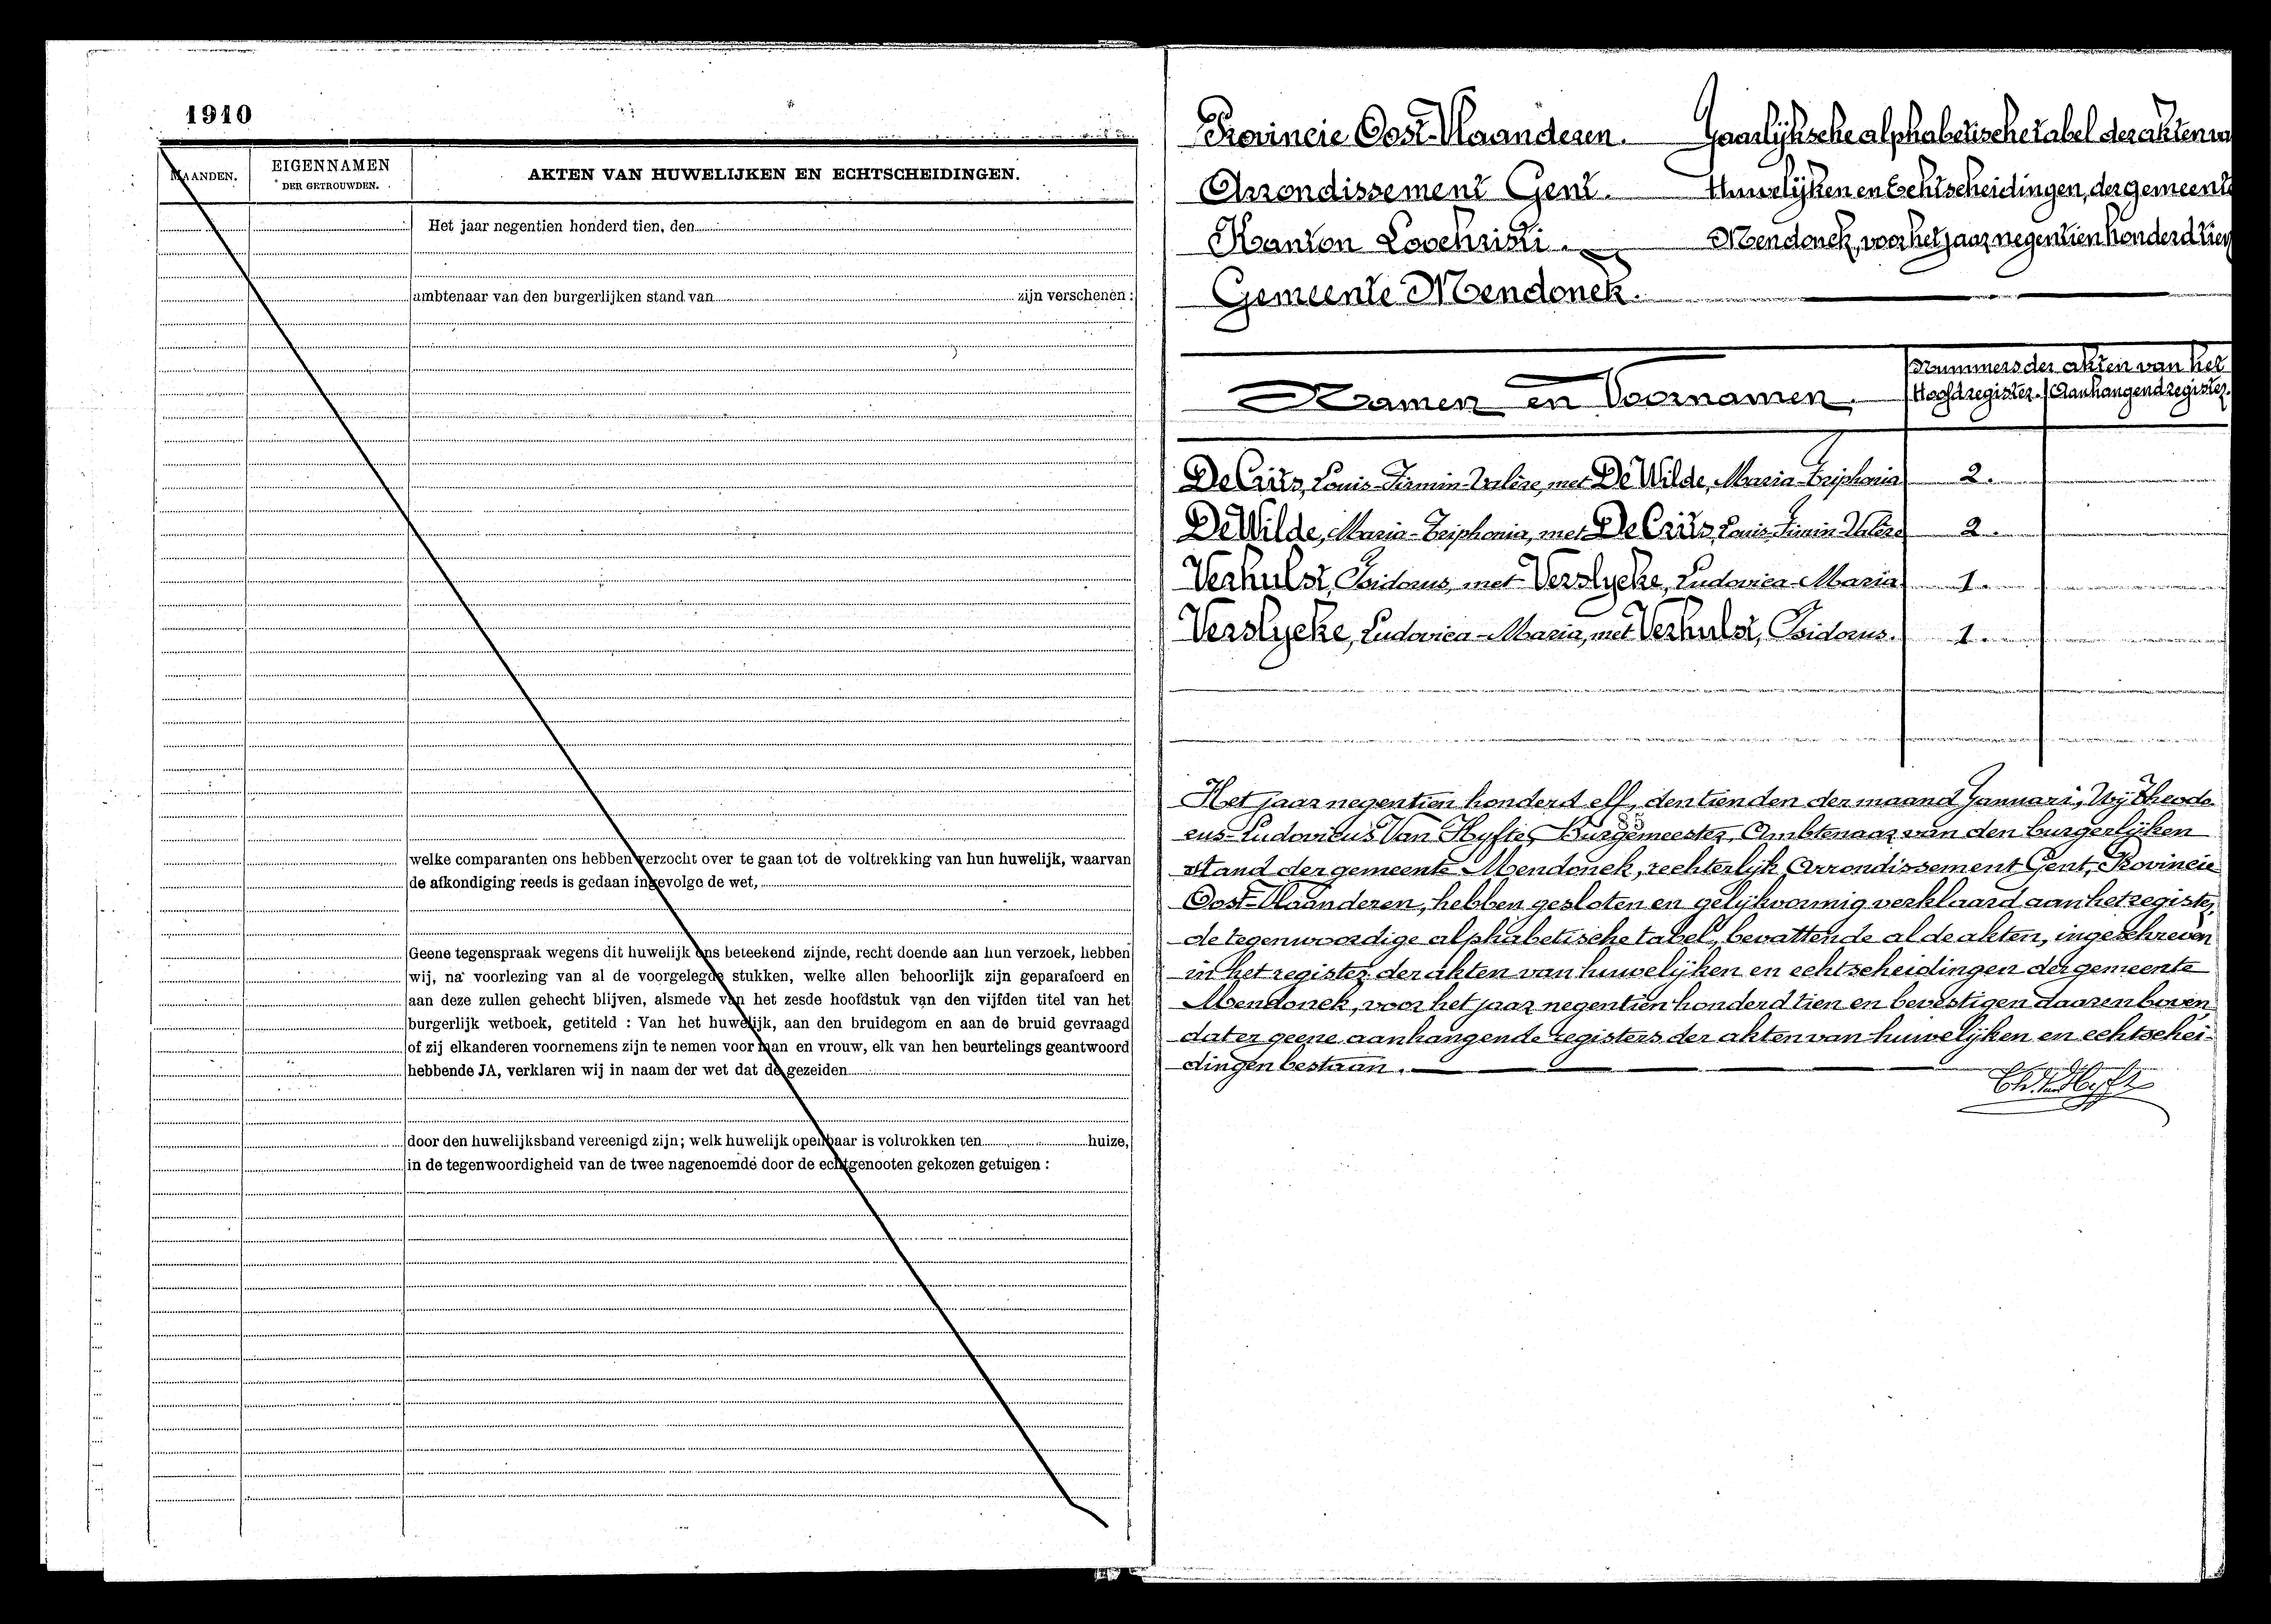 1910
MAANDEN.
EIGENNAMEN
DER GETROUWDEN.
AKTEN VAN HUWELIJKEN EN ECHTSCHEIDINGEN.
Het jaar negentien honderd tien, den
ambtenaar van den burgerlijken stand van zijn verschenen :
welke comparanten ons hebben verzocht over te gaan tot de voltrekking van hun huwelijk, waarvan
de afkondiging reeds is gedaan ingevolge de wet,
Geene tegenspraak wegens dit huwelijk ons beteekend zijnde, recht doende aan hun verzoek, hebben
wij, na voorlezing van al de voorgelegde stukken, welke allen behoorlijk zijn geparafeerd en
aan deze zullen gehecht blijven, alsmede van het zesde hoofdstuk van den vijfden titel van het
burgerlijk wetboek, getiteld : Van het huwelijk, aan den bruidegom en aan de bruid gevraagd
of zij elkanderen voornemens zijn te nemen voor man en vrouw, elk van hen beurtelings geantwoord
hebbende JA, verklaren wij in naam der wet dat de gezeiden
door den huwelijksband vereenigd zijn; welk huwelijk openbaar is voltrokken ten huize,
in de tegenwoordigheid van de twee nagenoemde door de echtgenooten gekozen getuigen :
Provincie Oost-Vlaanderen.
Arrondissement Gent.
Kanton Loochristi.
Gemeente Mendonck.
Jaarlijksche alphabetische tabel der akten va
Huwelijken en Echtscheidingen, der gemeente
Mendonck, voor het jaar negentien honderd tien
Namen en Voornamen.
Nummers der akten van het
Hoofdregister. Aanhangendregister.
Louis-Firmin-Valère, met De Wilde, Maria-Triphonia 2.
De Wilde, Maria-Triphonia, met Louis-Firmin-Valère 2.
Verhulst, Isidorus, met Verslycke, Ludovica-Maria 1.
Verslycke, Ludovica-Maria, met Verhulst, Isidorus. 1.
Het jaar negentien honderd elf, den tienden der maand Januari, Wij Theodo-
rus-Ludovicus Van Hyfte, Burgemeester, Ambtenaar van den burgerlijken
stand der gemeente Mendonck, rechterlijk Arrondissement Gent, Provincie
Oost-Vlaanderen, hebben gesloten en gelijkvormig verklaard aan het register,
de tegenwoordige alphabetische tabel, bevattende al de akten, ingeschreven
in het register der akten van huwelijken en echtscheidingen der gemeente
Mendonck, voor het jaar negentien honderd tien en bevestigen daarenboven,
dat er geene aanhangende registers der akten van huwelijken en echtschei-
dingen bestaan.
Th. Van Hyfte